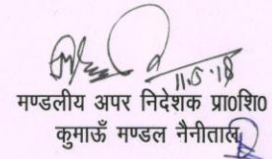 11.5.18
मण्डलीय अपर निदेशक प्रा०शि०
कुमाऊँ मण्डल नैनीताल